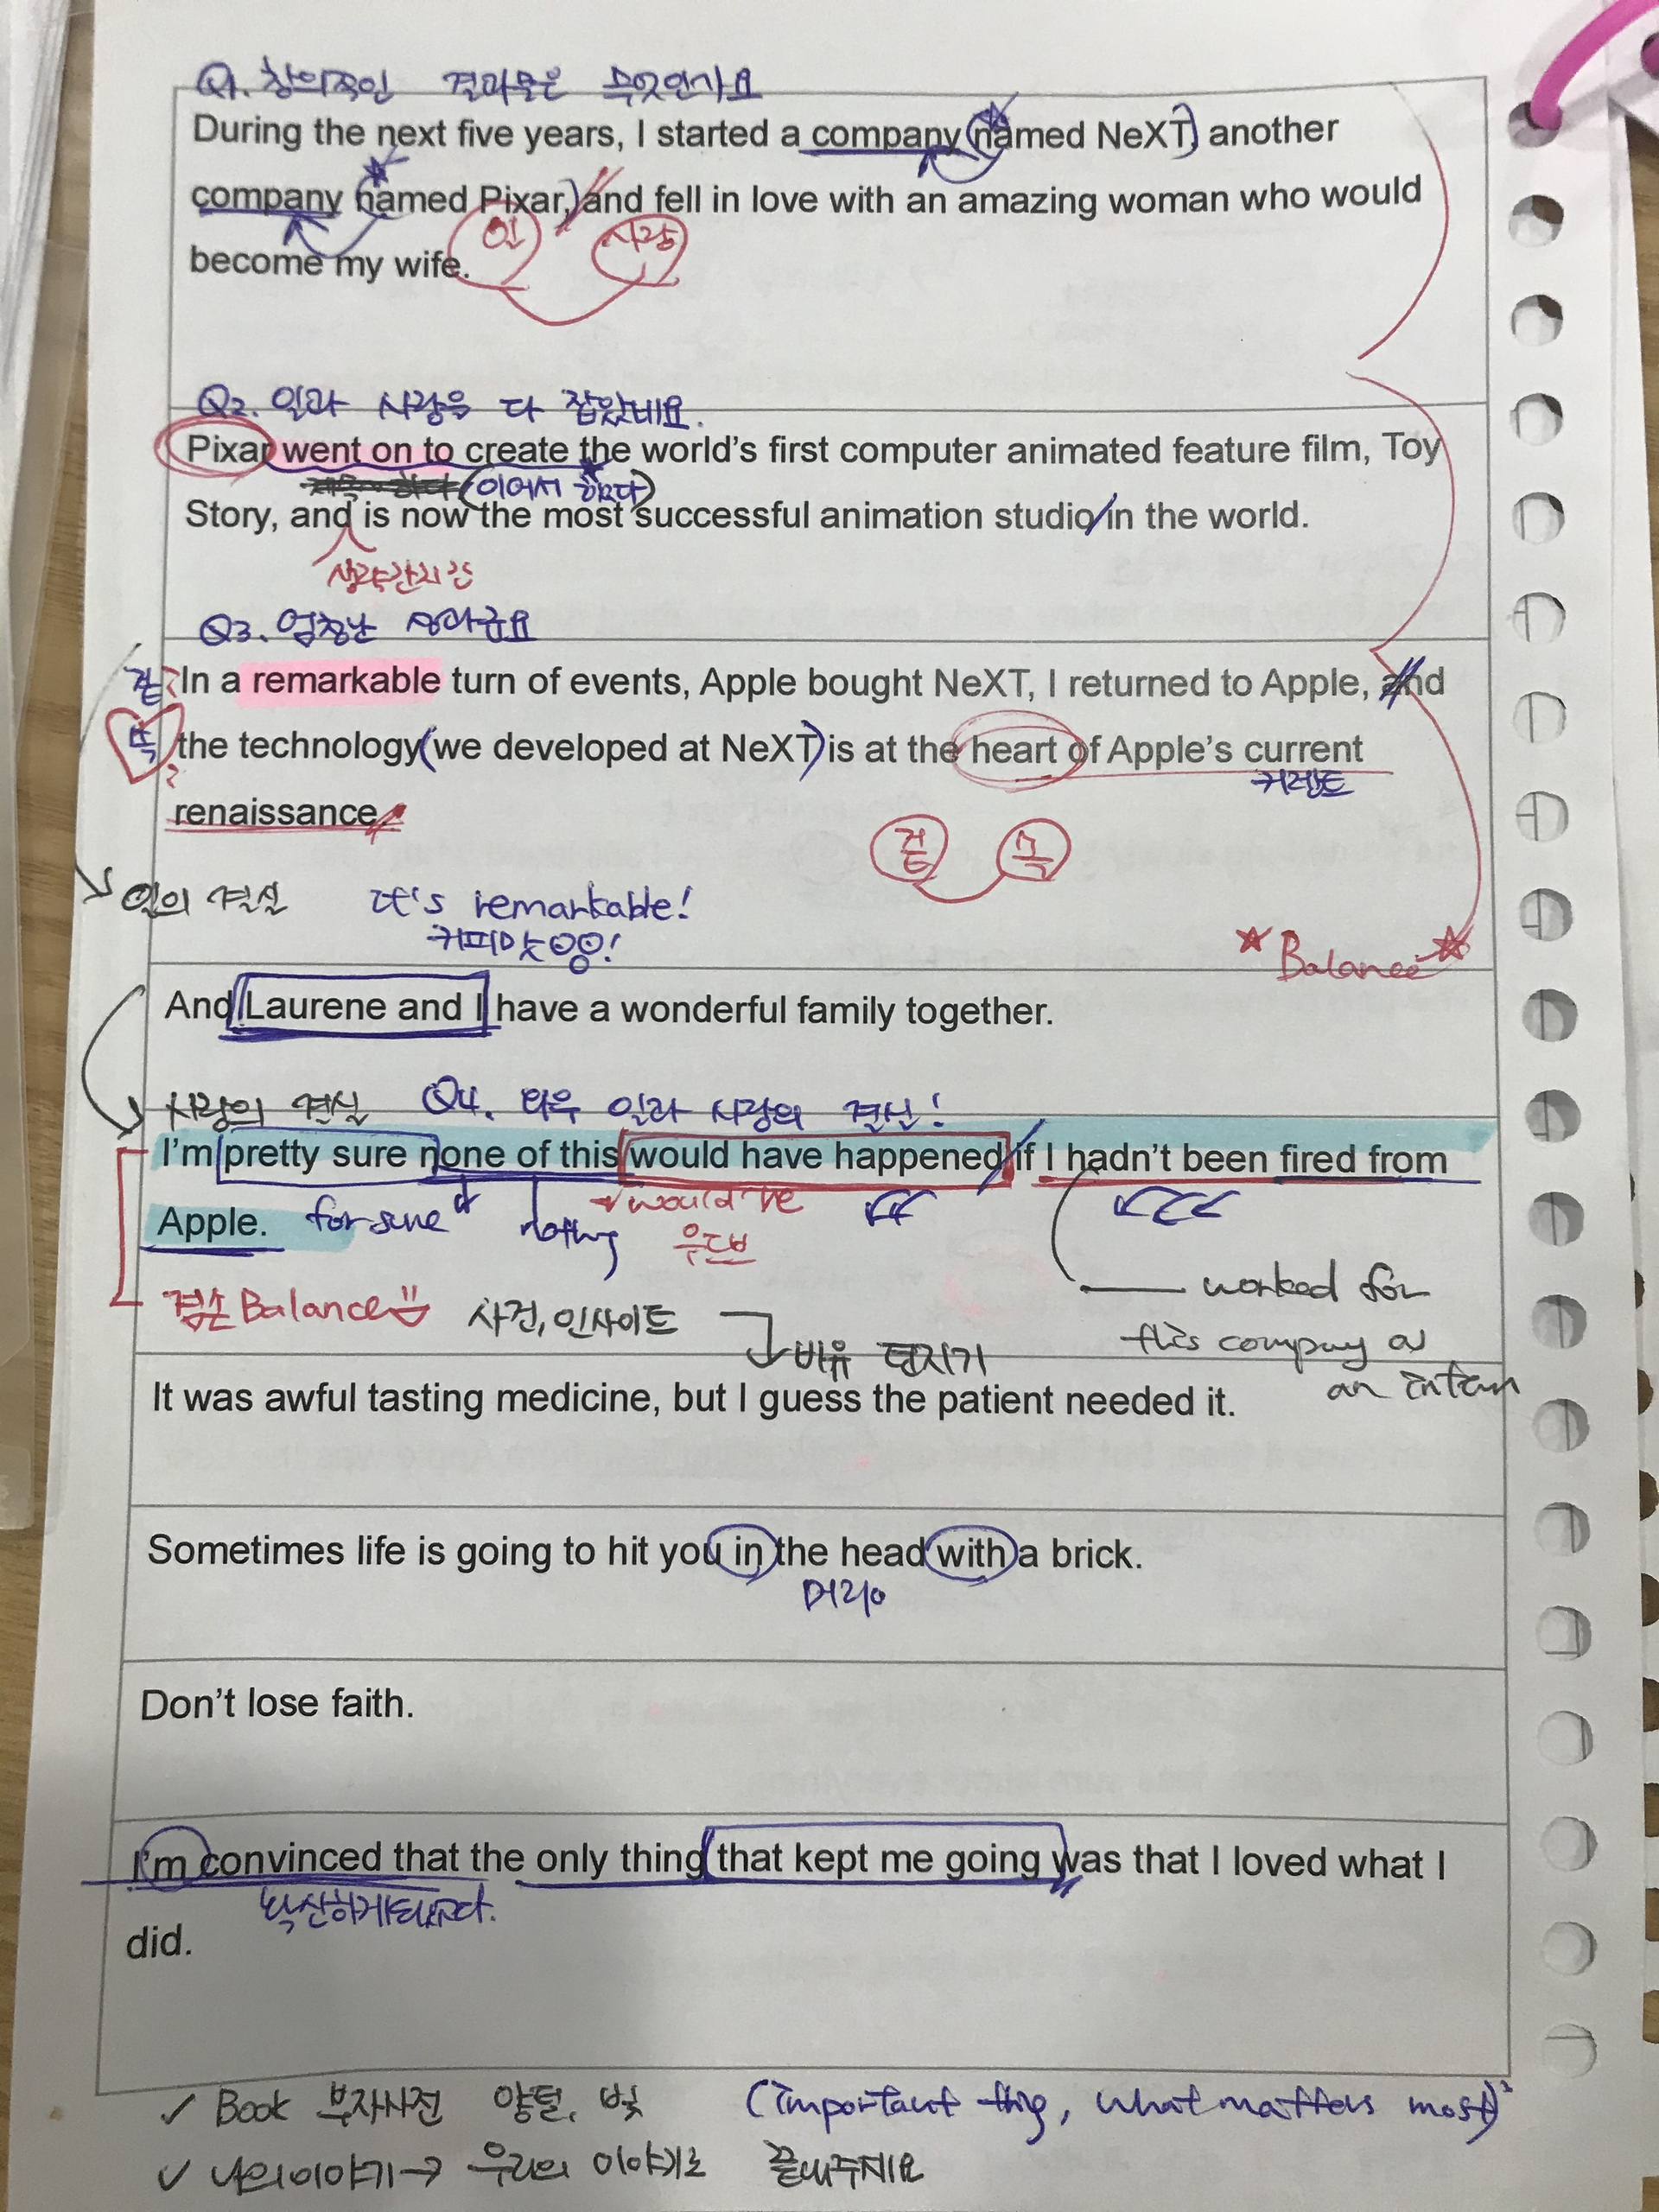 Q1. 창의적인 결과물은 무엇인가요
During the next five years, I started a company named NeXT, another
company named Pixar, and fell in love with an amazing woman who would
일 사랑
become my wife.
Q2. 일과 사랑을 다 잡았네요.
Pixar went on to create the world's first computer animated feature film, Toy
(이어서 했다)
Story, and is now the most successful animation studio in the world.
생략간지
Q3. 엄청난
In a remarkable turn of events, Apple bought NeXT, I returned to Apple, and
the technology we developed at NeXT is at the heart of Apple's current
커렌트
renaissance.
겉 속
일의 결실 It's remarkable!
커피맛
Balance
And Laurene and I have a wonderful family together.
사랑의 결실 Q4. 와우 일과 사랑의 결실!
I'm pretty sure none of this would have happened if I hadn't been fired from
Apple. for sure nothing would've
우르브
겸손 Balance 사건, 인사이트 worked for
비유 던지기 this company as
an intern
It was awful tasting medicine, but I guess the patient needed it.
Sometimes life is going to hit you in the head with a brick.
Don't lose faith.
I'm convinced that the only thing that kept me going was that I loved what I
확신하게되었다.
did.
✓ Book 부자사전 양털, 빛 (important thing, what matters most)
✓ 나의이야기→ 우리의 이야기로 끝내주세요